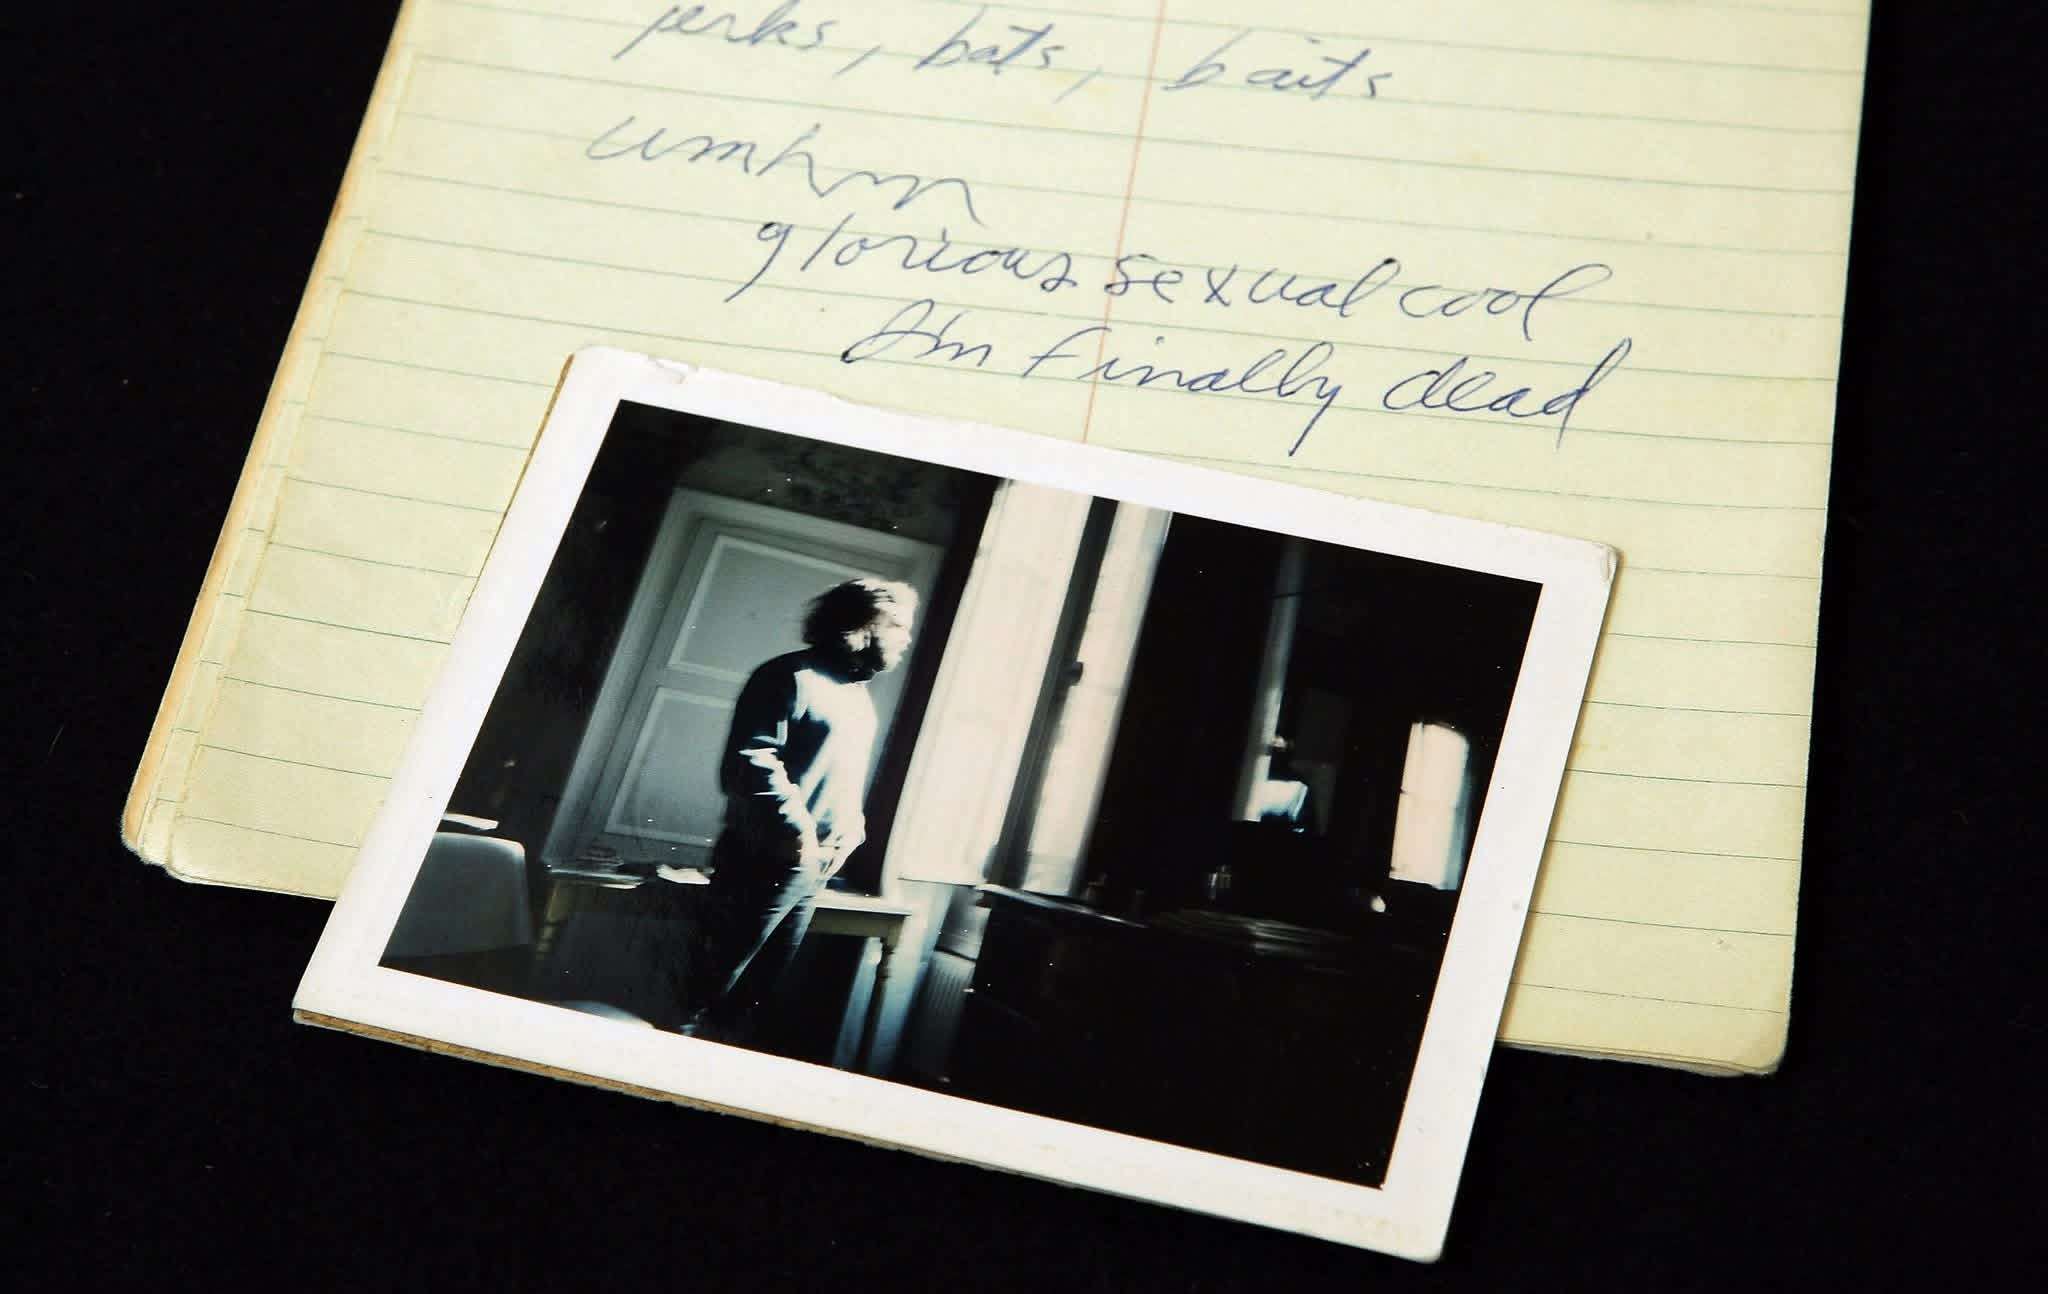 jerks, bats, baits
umhm
glorious sexual cool
I'm finally dead